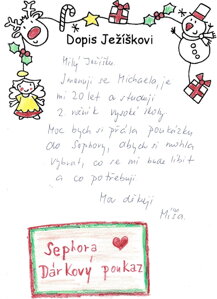 Dopis Ježíškovi
Milý Ježíšku
Jmenuji se Michaela, je
mi 20 let a studuji
2. ročník vysoké školy.
Moc bych si přála poukázku
do Sephory, abych si mohla
vybrat, co se mi bude líbit
a co potřebuji
Moc děkuji
Míša.
Sephora
Dárkový poukaz